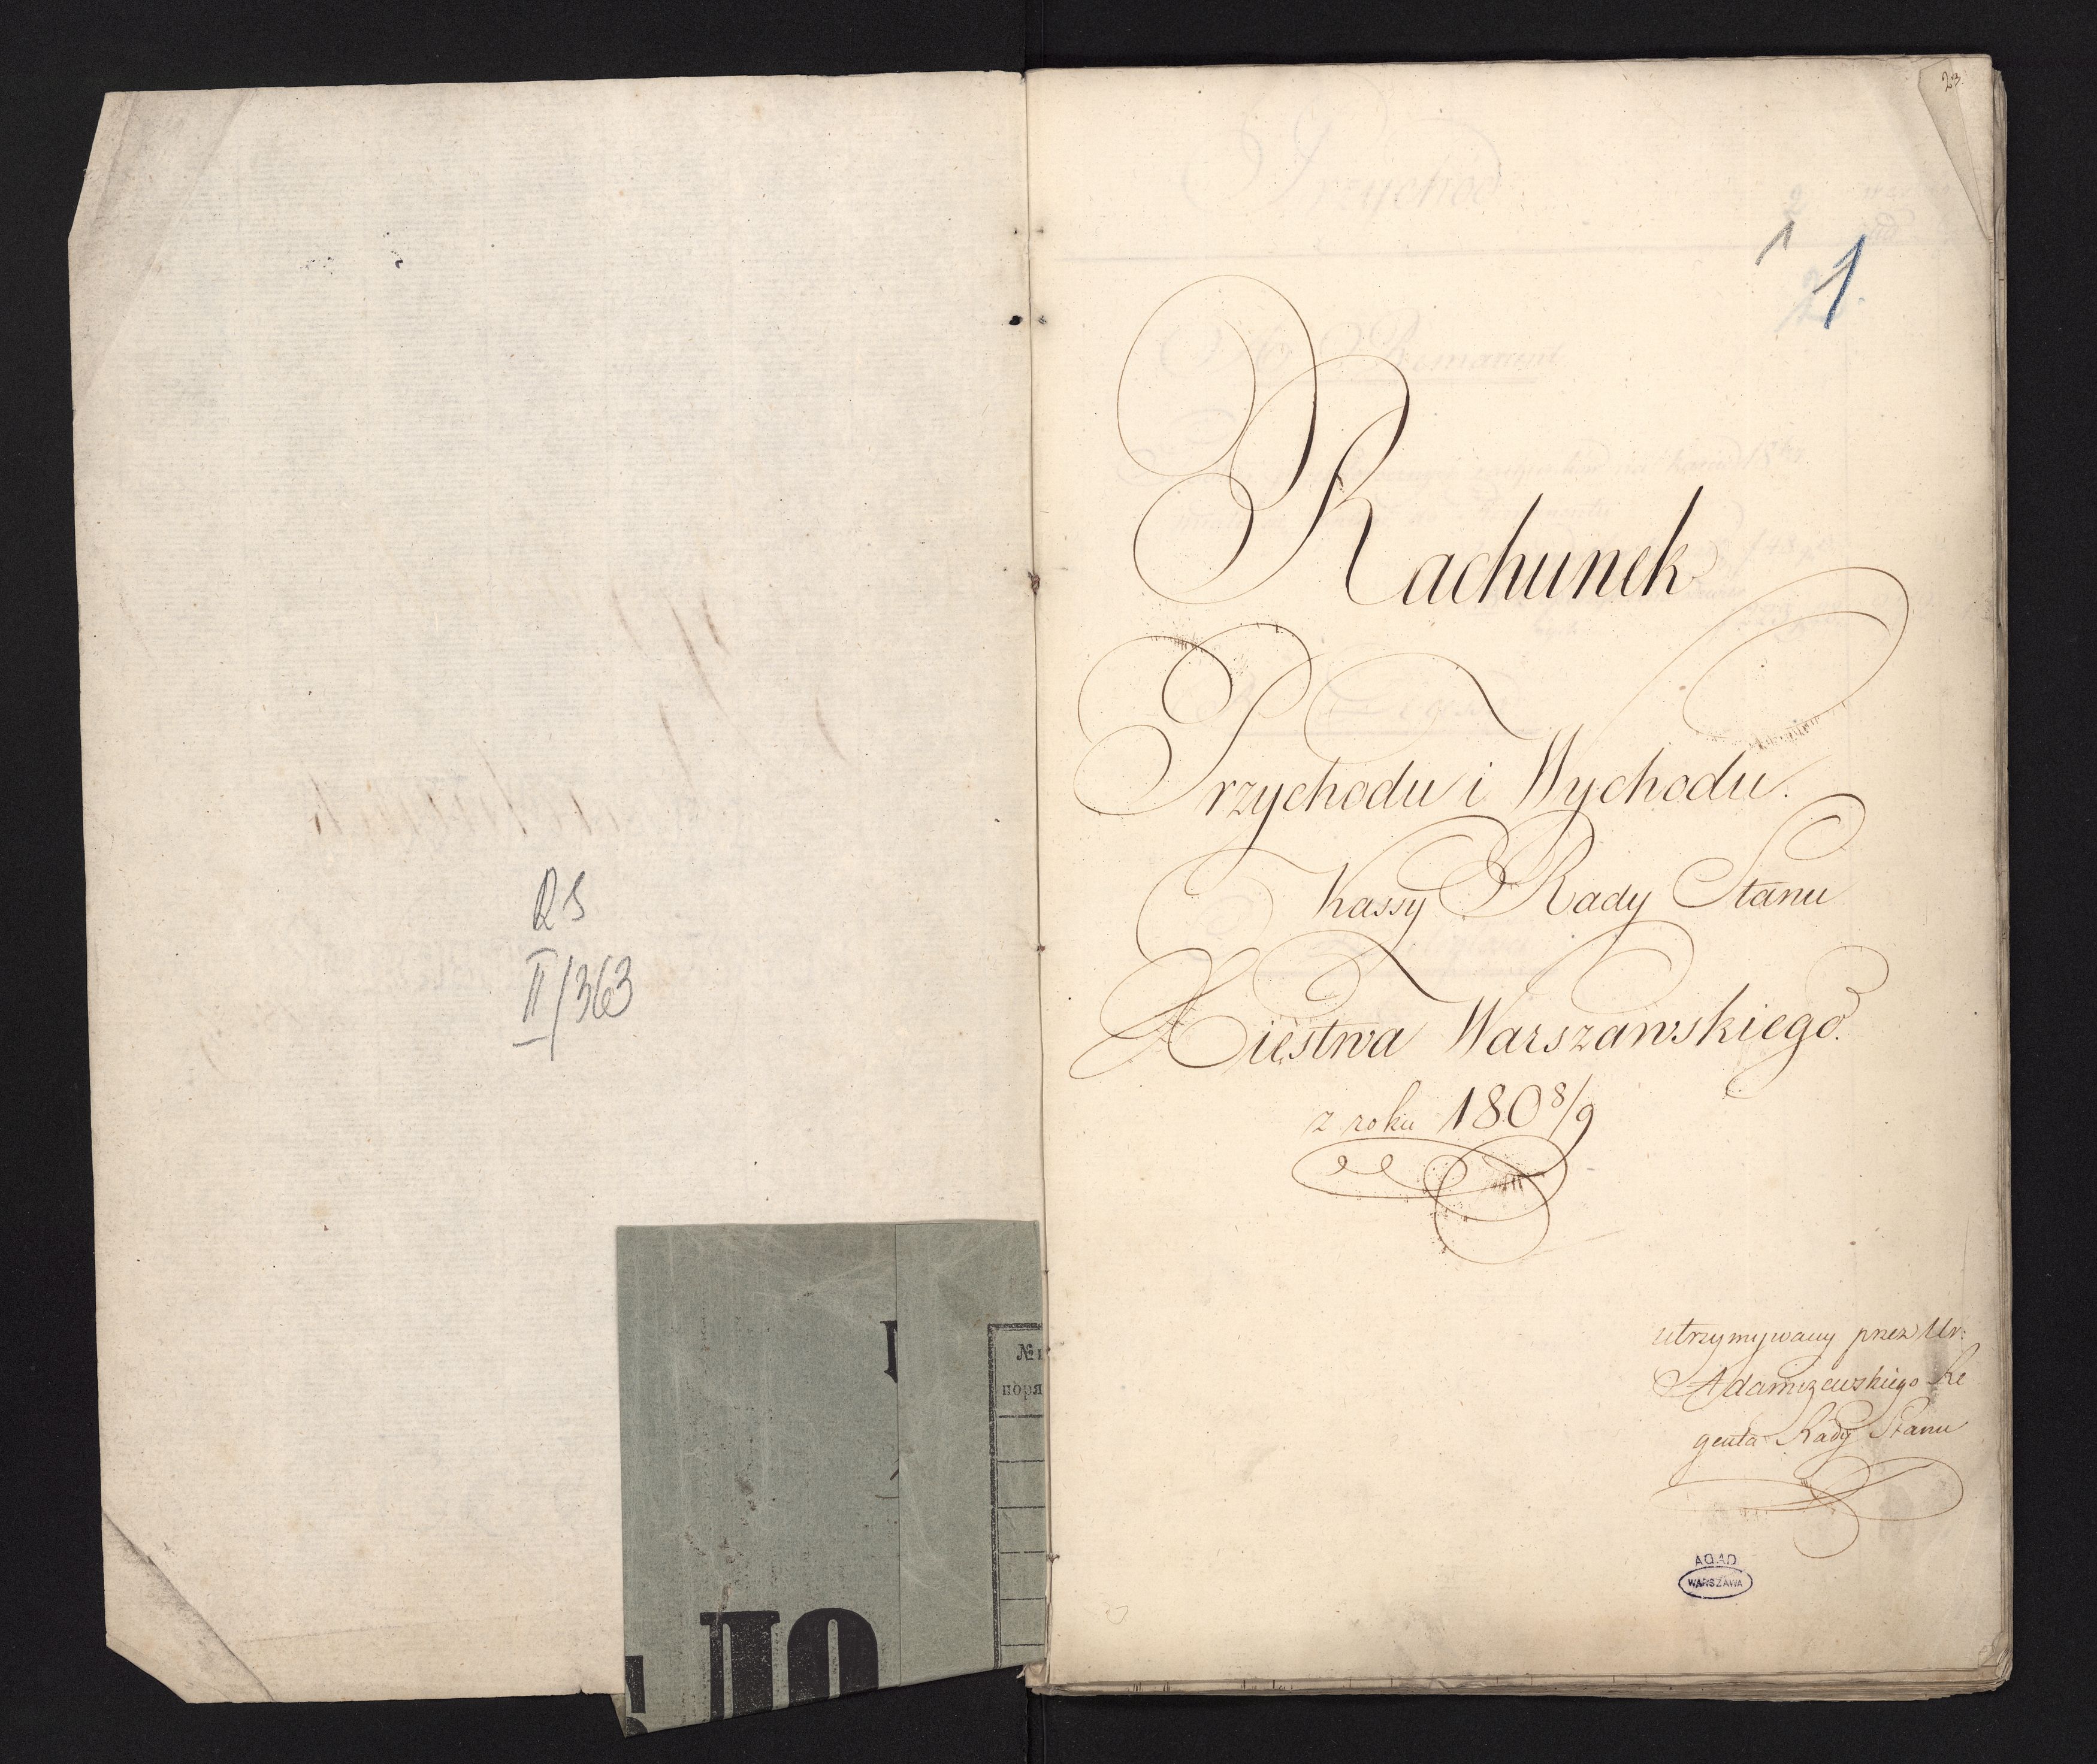 RS
II/363
№
поря
ЛО
23
1
1
Rachunek
Przychodu i Wychodu.
Kassy Rady Stanu
Xięstwa Warszawskiego.
z roku 180 8/9
utrzymywany przez Ur:
Adamczewskiego Re
genta Rady Stanu
AGAD
WARSZAWA